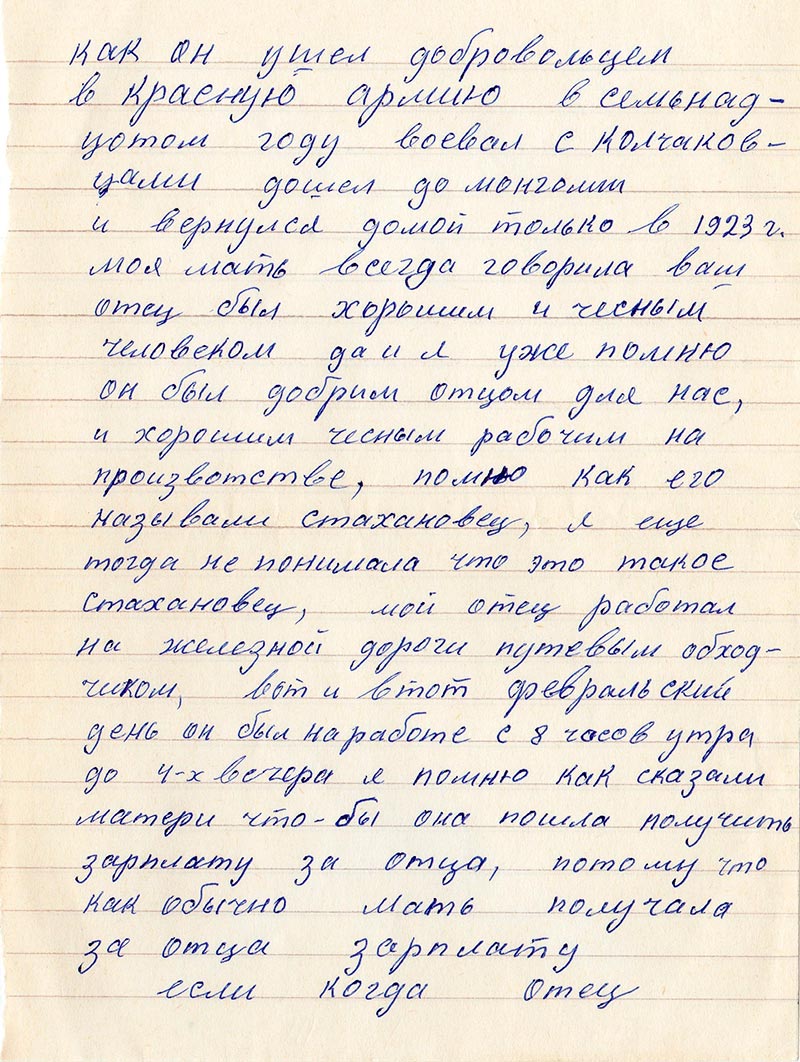 как он ушел добровольцем
в красную армию в семьнад-
цотом году воевал с колчаков-
цами дошел до монголии
и вернулся домой только в 1923 г.
моя мать всегда говорила ваш
отец был хорошим и чесным
человеком да и я уже помню
он был добрим отцом для нас,
и хорошим чесным рабочим на
произвотстве, помню как его
называли стахановец, я еще
тогда не понимала что это такое
стахановец, мой отец работал
на железной дороги путевым обход-
чиком, вот и в тот февральский
день он был на работе с 8 часов утра
до 4-х вечера я помню как сказали
матери что-бы она пошла получить
зарплату за отца, потому что
как обычно мать получала
за отца зарплату
если когда отец